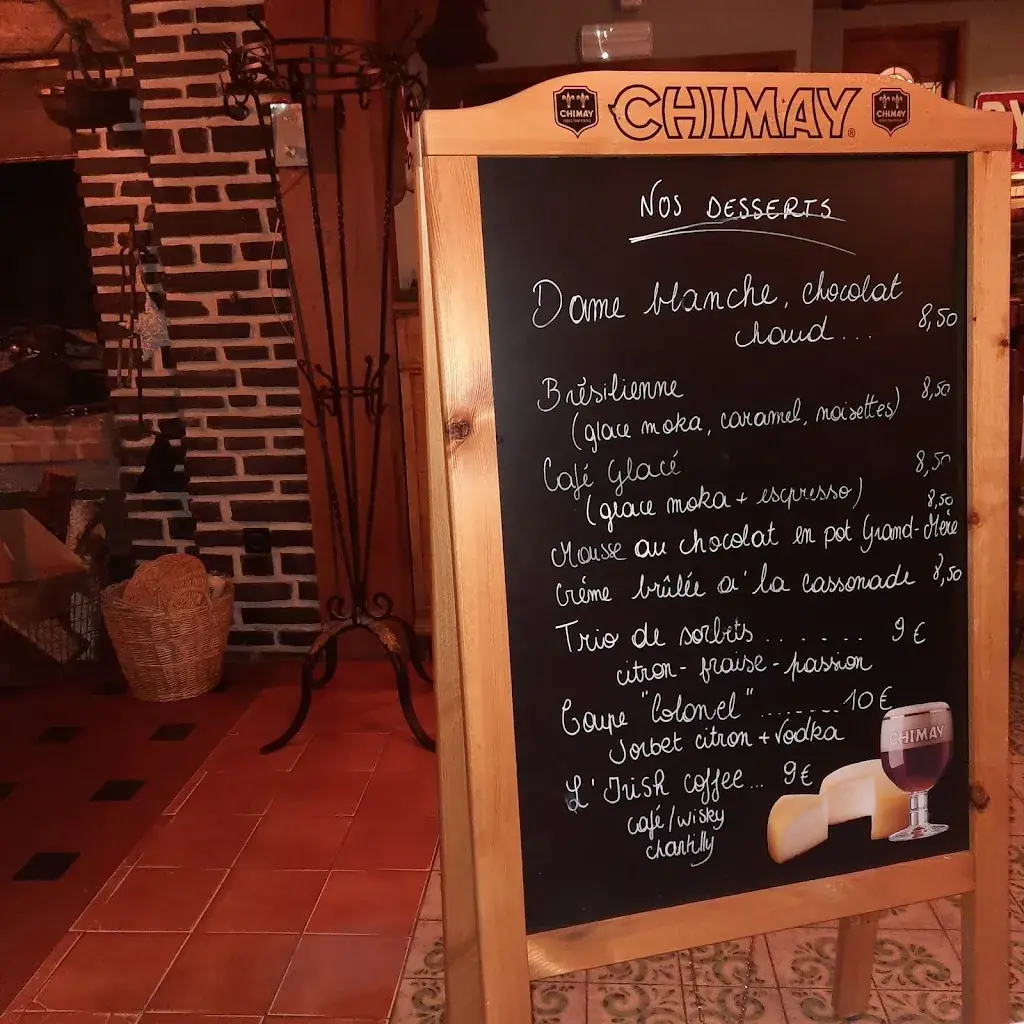 CHIMAY
CHIMAY
CHIMAY
NOS DESSERTS
Dame blanche, chocolat
chaud.... 8,50
Brésilienne 8,50
(glace moka, caramel, noisettes)
Café Glacé 8,50
(glace moka + espresso)
8,50
Mousse au chocolat en pot Grand-Mère
Crème brûlée a' la cassonade 8,50
Trio de sorbets ...... 9 €
citron - fraise - passion
Coupe "Colonel" ....... 10 €
Sorbet citron + Vodka
L'Irish coffee... 9 €
café/wisky
chantilly
CHIMAY